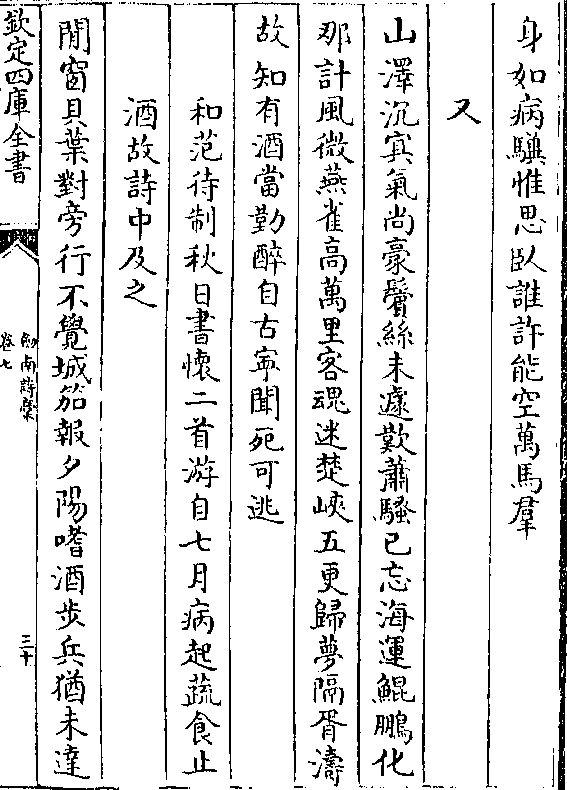 身如病驥惟思臥誰許能空萬馬羣
又
山澤沉冥氣尚豪鬢絲未遽歎蕭騷已忘海運鯤鵬化
那計風微燕雀高萬里客魂迷楚峽五更歸夢隔胥濤
故知有酒當勤醉自古寧聞死可逃
和范待制秋日書懷二首游自七月病起蔬食止
酒故詩中及之
閒窗貝葉對旁行不覺城笳報夕陽嗜酒步兵猶未達
欽定四庫全書
劍南詩藁
卷七
三十